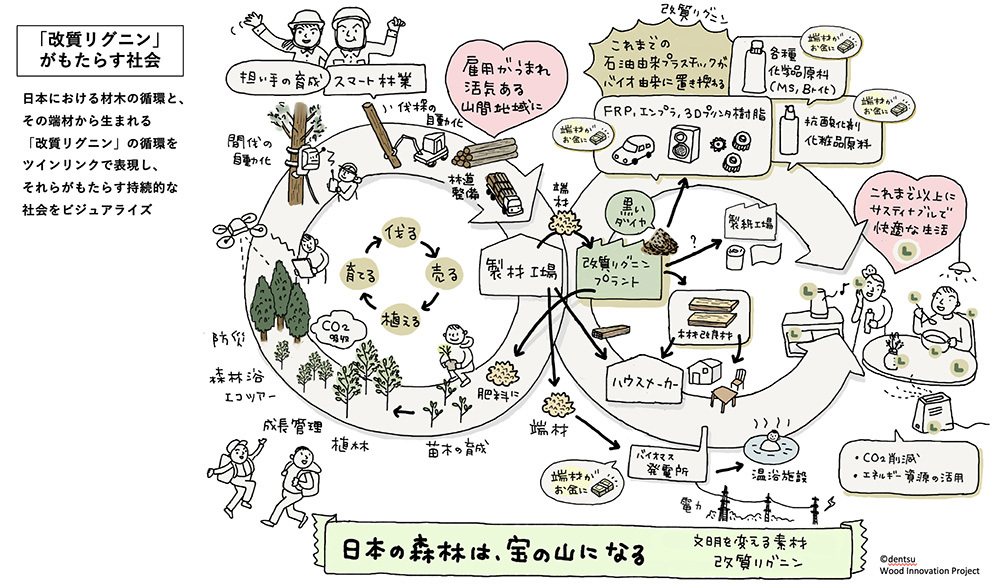 「改質リグニン」
がもたらす社会
日本における材木の循環と、
その端材から生まれる
「改質リグニン」の循環を
ツインリンクで表現し、
それらがもたらす持続的な
社会をビジュアライズ
担い手の育成
スマート林業
間伐の
自動化
伐採の
自動化
林道
整備
雇用がうまれ
活気ある
山間地域に
改質リグニン
これまでの
石油由来プラスチックが
バイオ由来に置き換わる
各種
化学品原料
(MS, Br化)
端材が
お金に
FRP,エンプラ,3Dプリンタ樹脂
端材が
お金に
抗酸化剤
化粧品原料
端材が
お金に
これまで以上に
サスティナブルで
快適な生活
伐る
売る
植える
育てる
製材工場
端材
黒い
ダイヤ
改質リグニン
プラント
?
製紙工場
木材改良材
ハウスメーカー
CO2
吸収
防災
森林浴
エコツアー
成長管理
植林
苗木の育成
肥料に
端材
端材が
お金に
バイオマス
発電所
温浴施設
電力
・CO2削減
・エネルギー資源の活用
日本の森林は、宝の山になる
文明を変える素材
改質リグニン
©dentsu
Wood Innovation Project